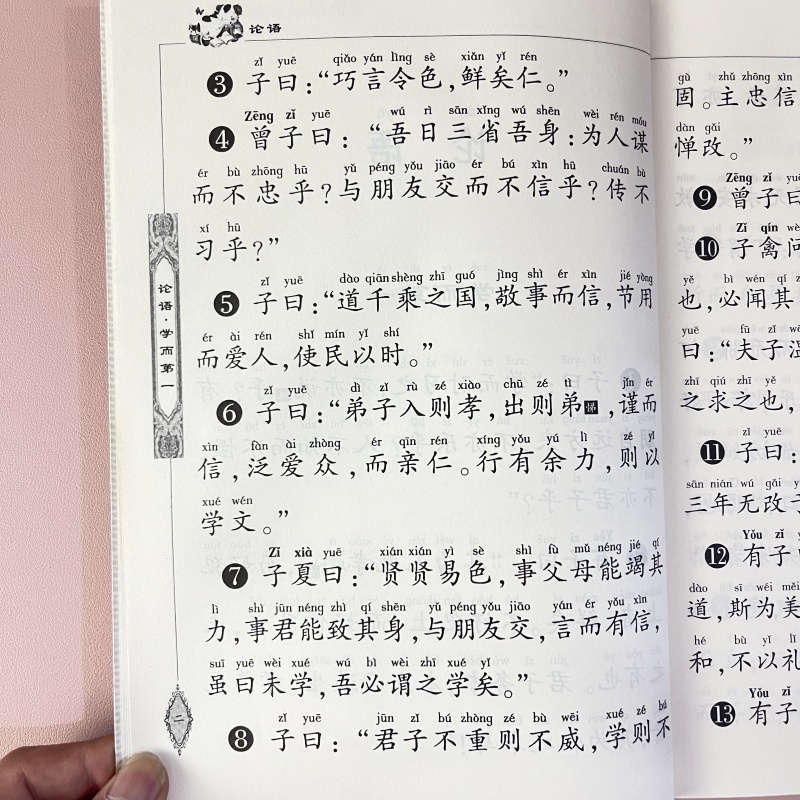 论语
zǐ yuē qiǎo yán lìng sè xiǎn yǐ rén
❸ 子曰：“巧言令色，鲜矣仁。”
Zēng zǐ yuē wú rì sān xǐng wú shēn wèi rén móu
❹ 曾子曰：“吾日三省吾身：为人谋
ér bù zhōng hū yǔ péng yǒu jiāo ér bú xìn hū chuán bù
而不忠乎？与朋友交而不信乎？传不
xí hū
习乎？”
zǐ yuē dào qiān shèng zhī guó jìng shì ér xìn jié yòng
❺ 子曰：“道千乘之国，敬事而信，节用
ér ài rén shǐ mín yǐ shí
而爱人，使民以时。”
zǐ yuē dì zǐ rù zé xiào chū zé tì jǐn ér
❻ 子曰：“弟子入则孝，出则弟悌，谨而
xìn fàn ài zhòng ér qīn rén xíng yǒu yú lì zé yǐ
信，泛爱众，而亲仁。行有余力，则以
xué wén
学文。”
Zǐ xià yuē xián xián yì sè shì fù mǔ néng jié qí
❼ 子夏曰：“贤贤易色，事父母能竭其
lì shì jūn néng zhì qí shēn yǔ péng yǒu jiāo yán ér yǒu xìn
力，事君能致其身，与朋友交，言而有信，
suī yuē wèi xué wú bì wèi zhī xué yǐ
虽曰未学，吾必谓之学矣。”
zǐ yuē jūn zǐ bú zhòng zé bù wēi xué zé bú
❽ 子曰：“君子不重则不威，学则不
论语·学而第一
二
gù zhǔ zhōng xìn
固。主忠信
dàn gǎi
惮改。”
Zēng zǐ yuē
❾ 曾子曰
Zǐ qín wè
❿ 子禽问
yě bì wén qí z
也，必闻其
yuē fū zǐ w
曰：“夫子温
zhī qiú zhī yě
之求之也，
zǐ yuē
⓫ 子曰：
sān nián wú gǎi y
三年无改于
Yǒu zǐ y
⓬ 有子曰
dào sī wéi měi
道，斯为美
hé bù yǐ lǐ
和，不以礼
Yǒu zǐ
⓭ 有子